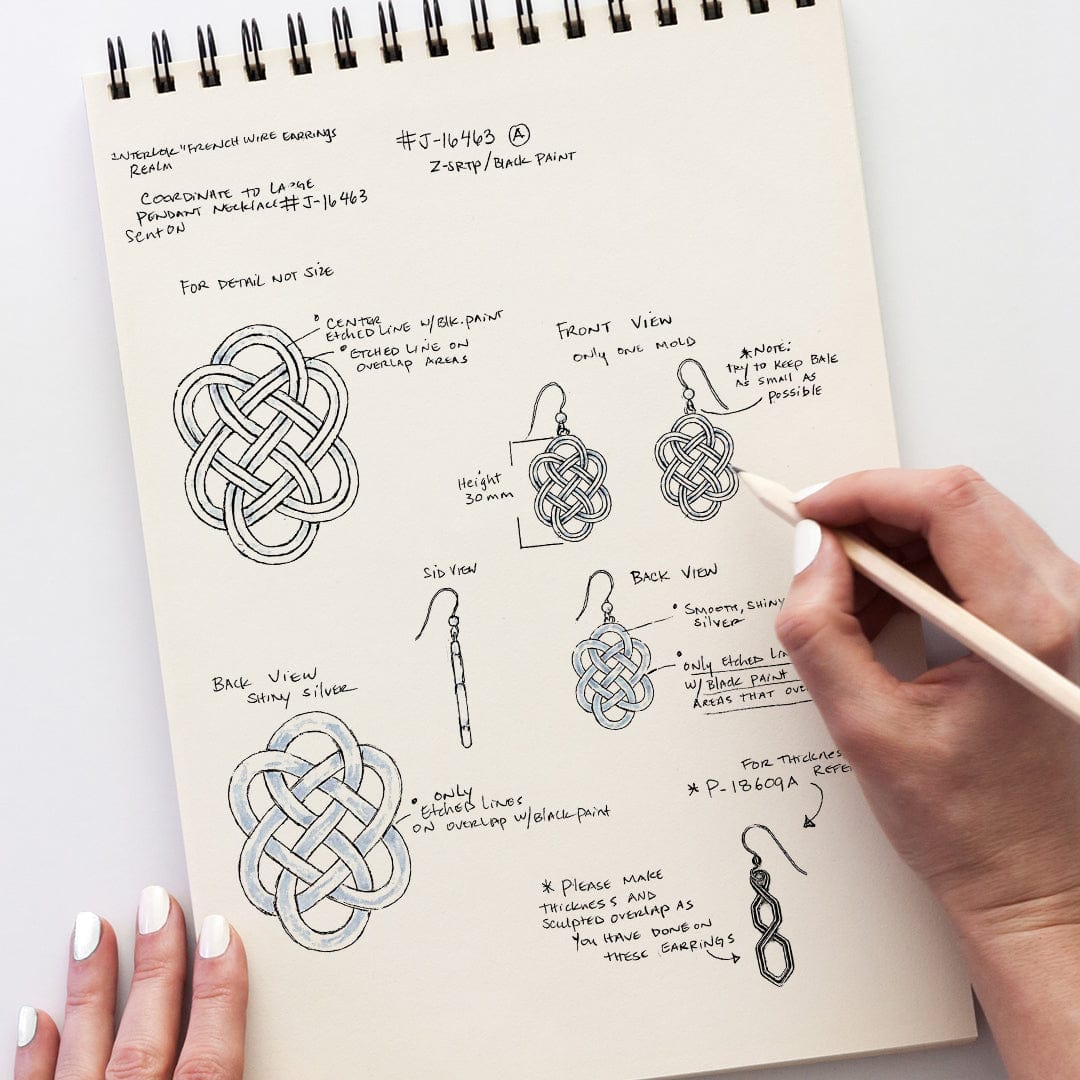 "INTERLOK" FRENCH WIRE EARRINGS
REALM
COORDINATE TO LARGE
PENDANT NECKLACE # J-16463
SENT ON
#J-16463 Ⓐ
Z-SRTP/BLACK PAINT
FOR DETAIL NOT SIZE
• CENTER
ETCHED LINE W/BLK.PAINT
• ETCHED LINE ON
OVERLAP AREAS
FRONT VIEW
ONLY ONE MOLD
*NOTE:
TRY TO KEEP BALE
AS SMALL AS
POSSIBLE
Height
30mm
SID VIEW
BACK VIEW
• SMOOTH, SHINY
SILVER
• ONLY ETCHED
W/ BLACK PAINT
AREAS THAT
BACK VIEW
SHINY SILVER
• ONLY
ETCHED LINES
ON OVERLAP W/BLACK PAINT
FOR THICKNES
* P-18609A REFE
* PLEASE MAKE
THICKNESS AND
SCULPTED OVERLAP AS
YOU HAVE DONE ON
THESE EARRINGS